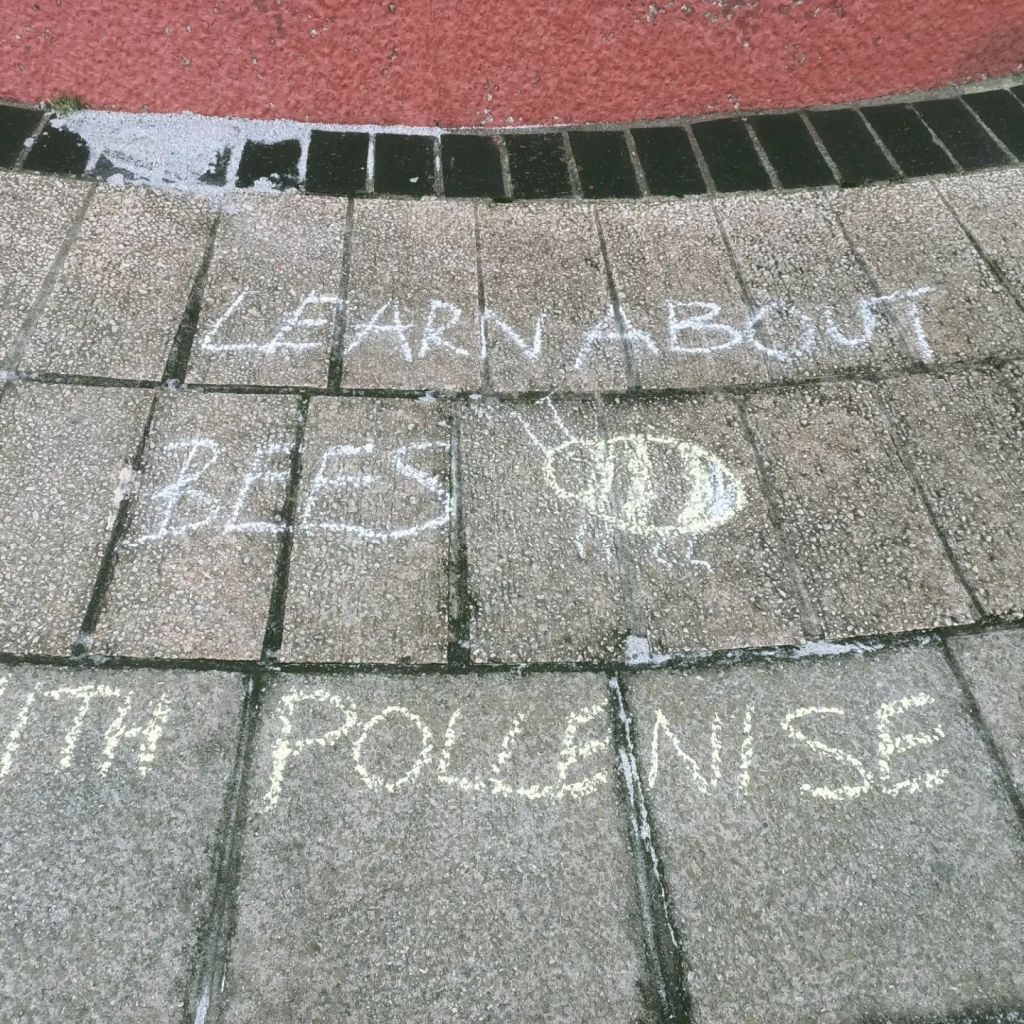 LEARN ABOUT
BEES
ITH POLLENISE